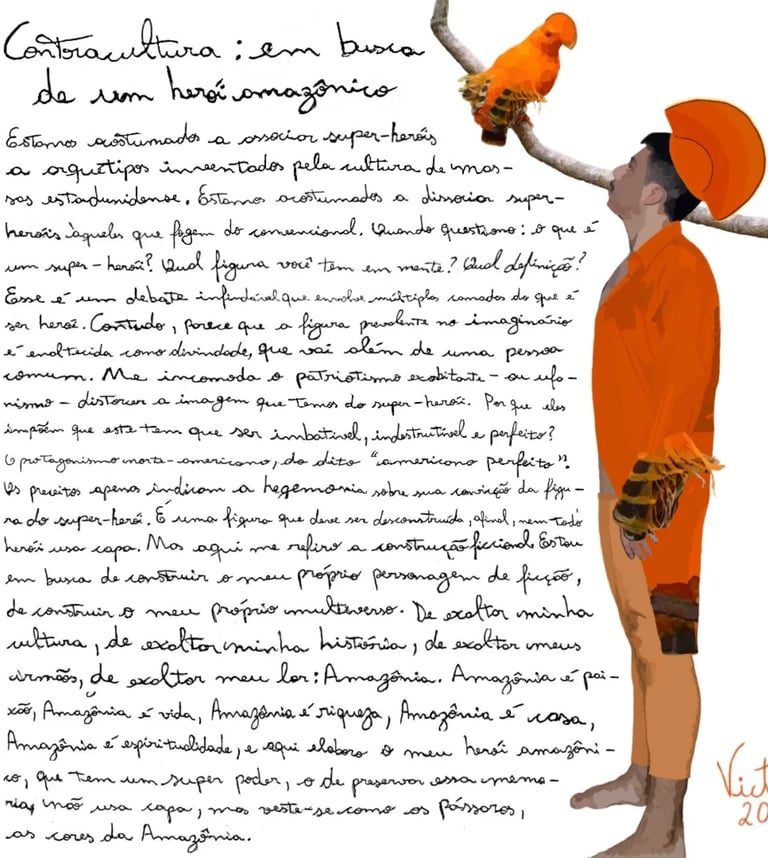 Contracultura: em busca
de um herói amazônico
Estamos acostumados a associar super-heróis
a arquétipos inventados pela cultura de mas-
sas estadunidense. Estamos acostumados a dissociar super-
heróis àqueles que fogem do convencional. Quando questiono: o que é
um super-herói? Qual figura você tem em mente? Qual definição?
Esse é um debate infindável que envolve múltiplas camadas do que é
ser herói. Contudo, parece que a figura prevalente no imaginário
é enaltecida como divindade, que vai além de uma pessoa
comum. Me incomoda o patriotismo exobitante - ou ufa-
nismo - distorcer a imagem que temos do super-herói. Por que eles
impõem que este tem que ser imbatível, indestrutível e perfeito?
O protagonismo norte-americano, do dito "americano perfeito".
Os preceitos apenas indicam a hegemonia sobre sua convicção da figu-
ra do super-herói. É uma figura que deve ser desconstruída, afinal, nem todo
herói usa capa. Mas aqui me refiro a construção ficcional. Estou
em busca de construir o meu próprio personagem de ficção,
de construir o meu próprio multiverso. De exaltar minha
cultura, de exaltar minha história, de exaltar meus
irmãos, de exaltar meu lar: Amazônia. Amazônia é pai-
xão, Amazônia é vida, Amazônia é riqueza, Amazônia é casa,
Amazônia é espiritualidade, e aqui elaboro o meu herói amazôni-
co, que tem um super poder, o de preservar essa memó-
ria, não usa capa, mas veste-se como os pássaros,
as cores da Amazônia.
Vict
20